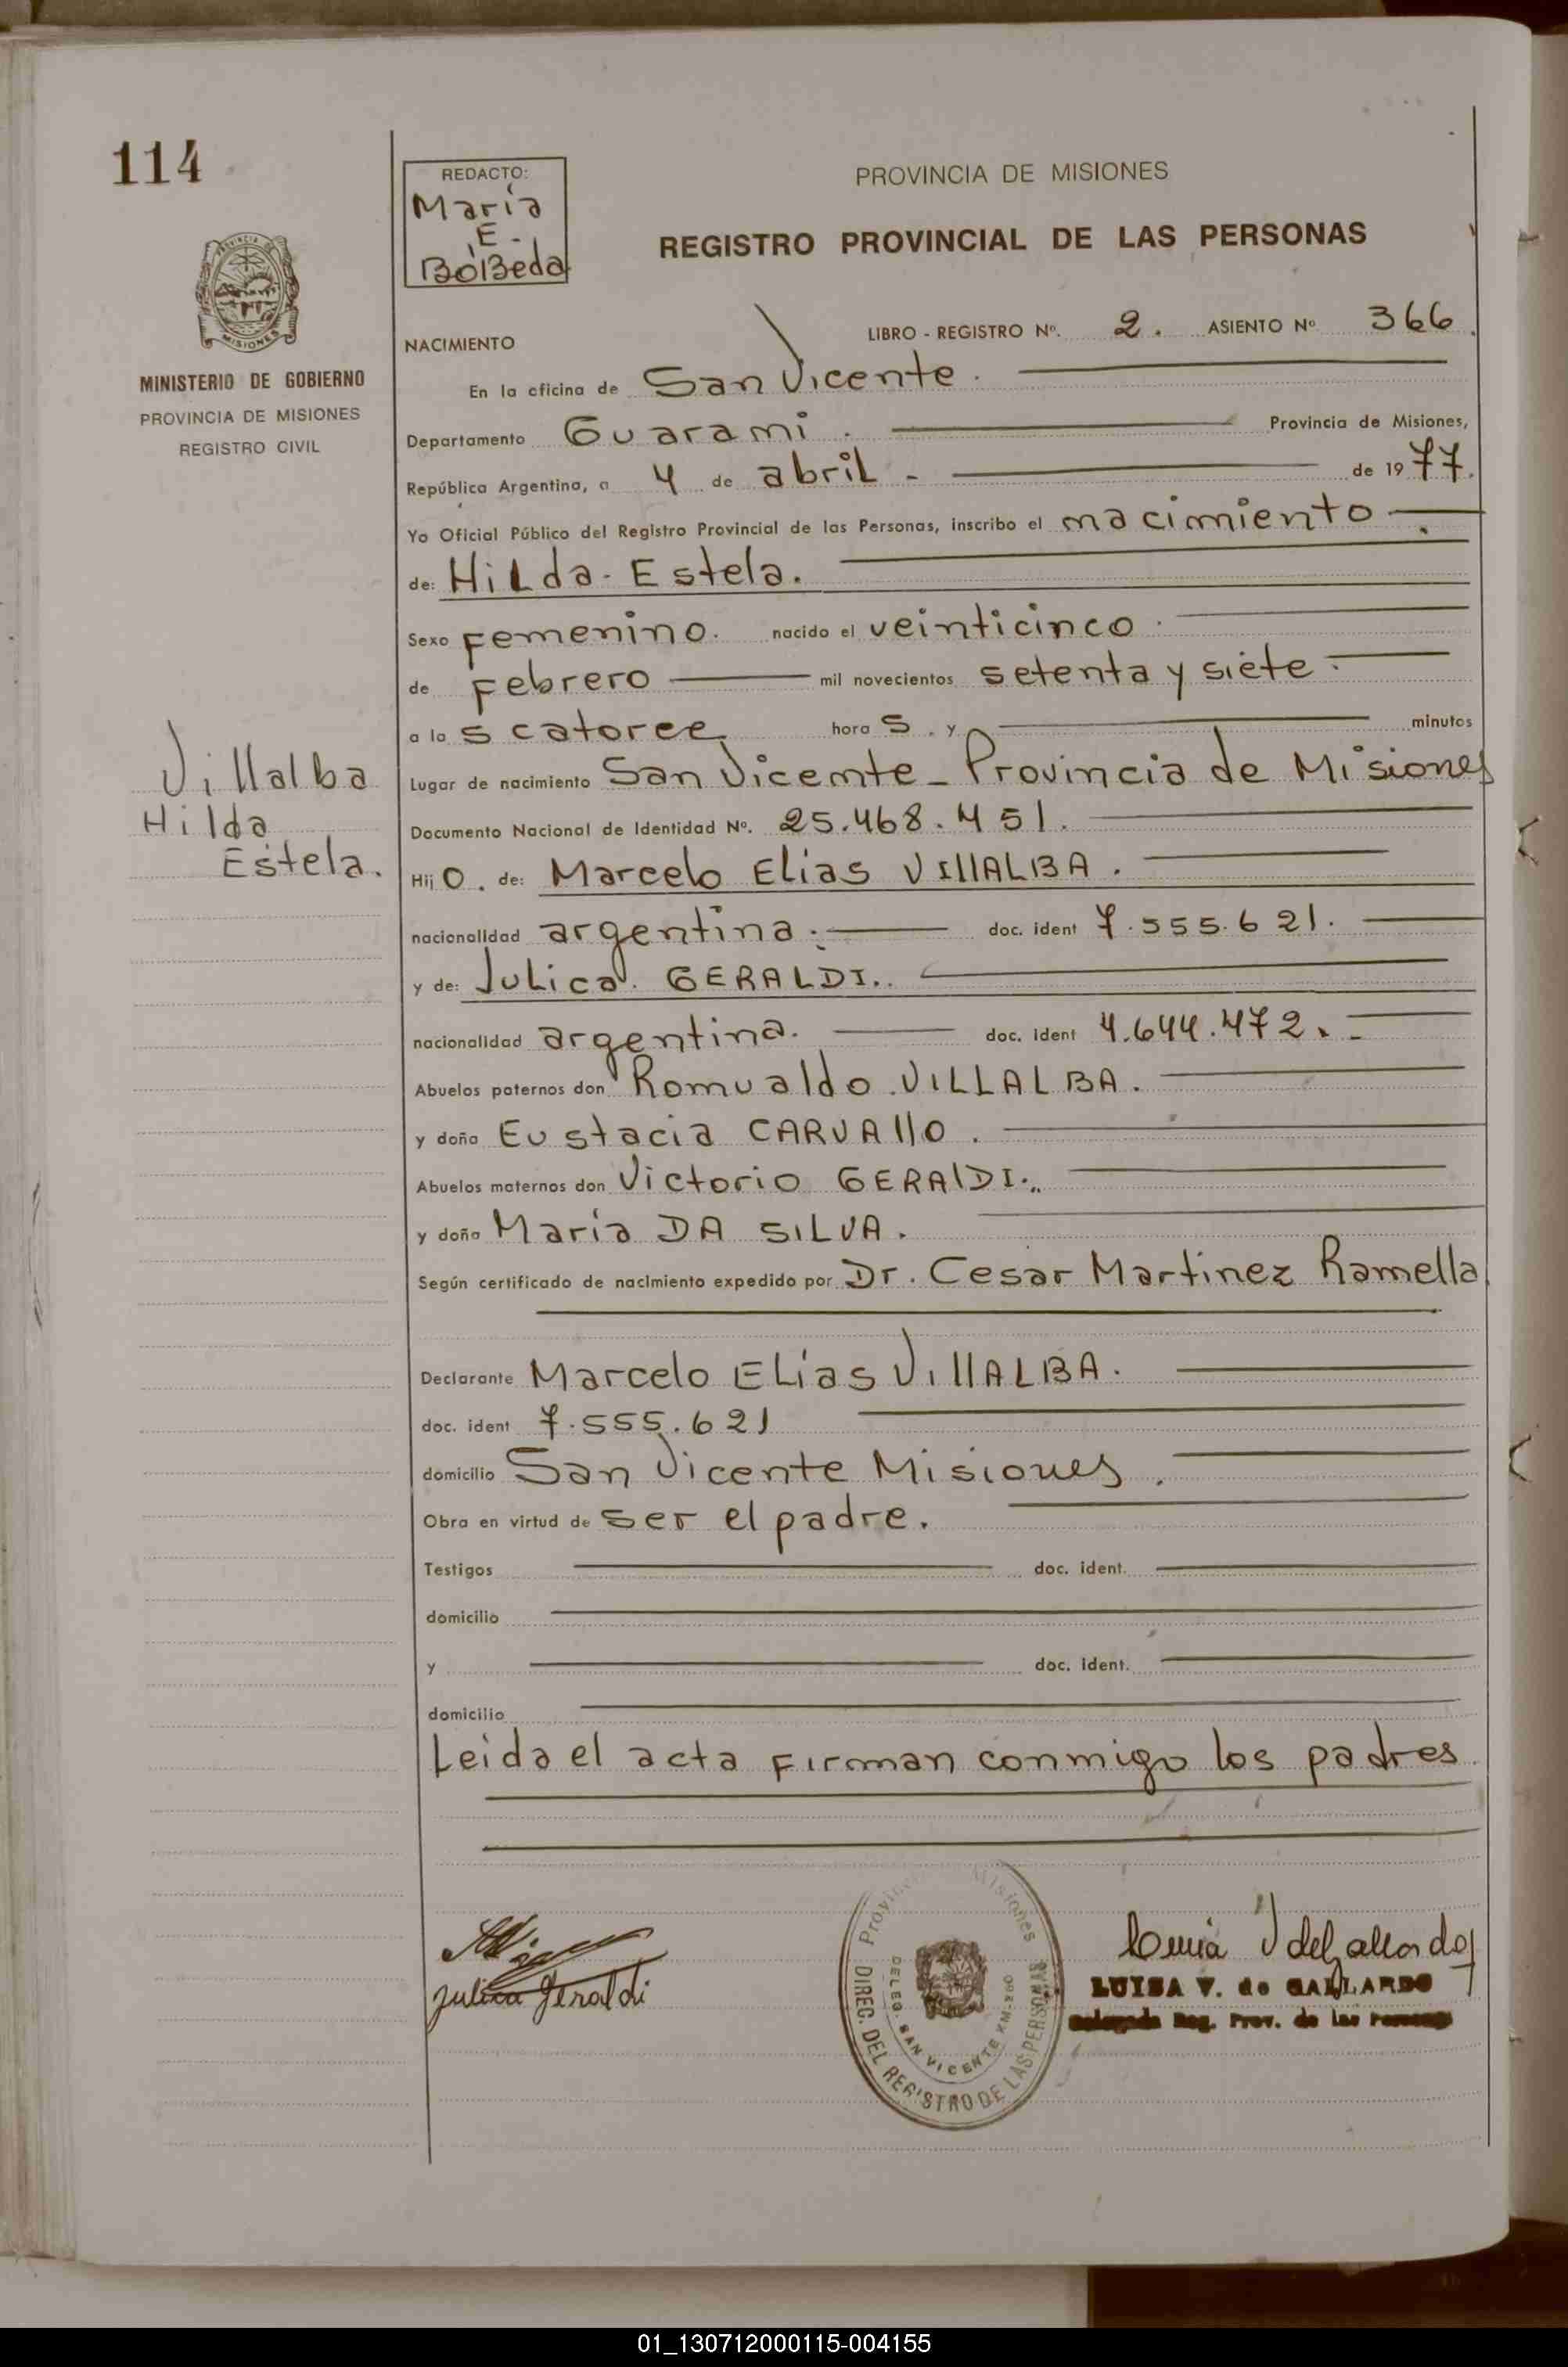 114
REDACTO:
María
E.
BólBeda
PROVINCIA DE MISIONES
REGISTRO PROVINCIAL DE LAS PERSONAS
PROVINCIA DE
MISIONES
MINISTERIO DE GOBIERNO
PROVINCIA DE MISIONES
REGISTRO CIVIL
NACIMIENTO
LIBRO - REGISTRO Nº. 2. ASIENTO Nº 366
En la oficina de San Vicente.
Departamento Guarami. Provincia de Misiones,
República Argentina, a 4 de abril - de 1977.
Yo Oficial Público del Registro Provincial de las Personas, inscribo el nacimiento
de: Hilda - Estela.
Sexo Femenino. nacido el veinticinco
de Febrero mil novecientos setenta y siete.
a las catorce horas. y minutos
Lugar de nacimiento San Vicente - Provincia de Misiones
Documento Nacional de Identidad Nº. 25.468.451.
Hijo. de: Marcelo Elias VIllALBA.
nacionalidad argentina. doc. ident 7.555.621.
y de: Julica. GERALDI..
nacionalidad argentina. doc. ident 4.644.472.
Abuelos paternos don Romualdo VILLALBA.
y doña Eustacia CARVAllO.
Abuelos maternos don Victorio GERAlDI.
y doña María DA SILVA.
Según certificado de nacimiento expedido por Dr. Cesar Martinez Ramella
Declarante Marcelo ELías VillALBA.
doc. ident 7.555.621
domicilio San Vicente Misiones.
Obra en virtud de ser el padre.
Testigos doc. ident.
domicilio
y doc. ident.
domicilio
Leida el acta Firman conmigo los padres
Villalba
Hilda
Estela.
Julica Geraldi
Provincia Misiones
DIREC. DEL REGISTRO DE LAS PERSONAS
DELEG. SAN VICENTE KM. 260
Luisa V de Gallardo
LUISA V. de GALLARDO
Delegada Reg. Prov. de las Personas
01_130712000115-004155